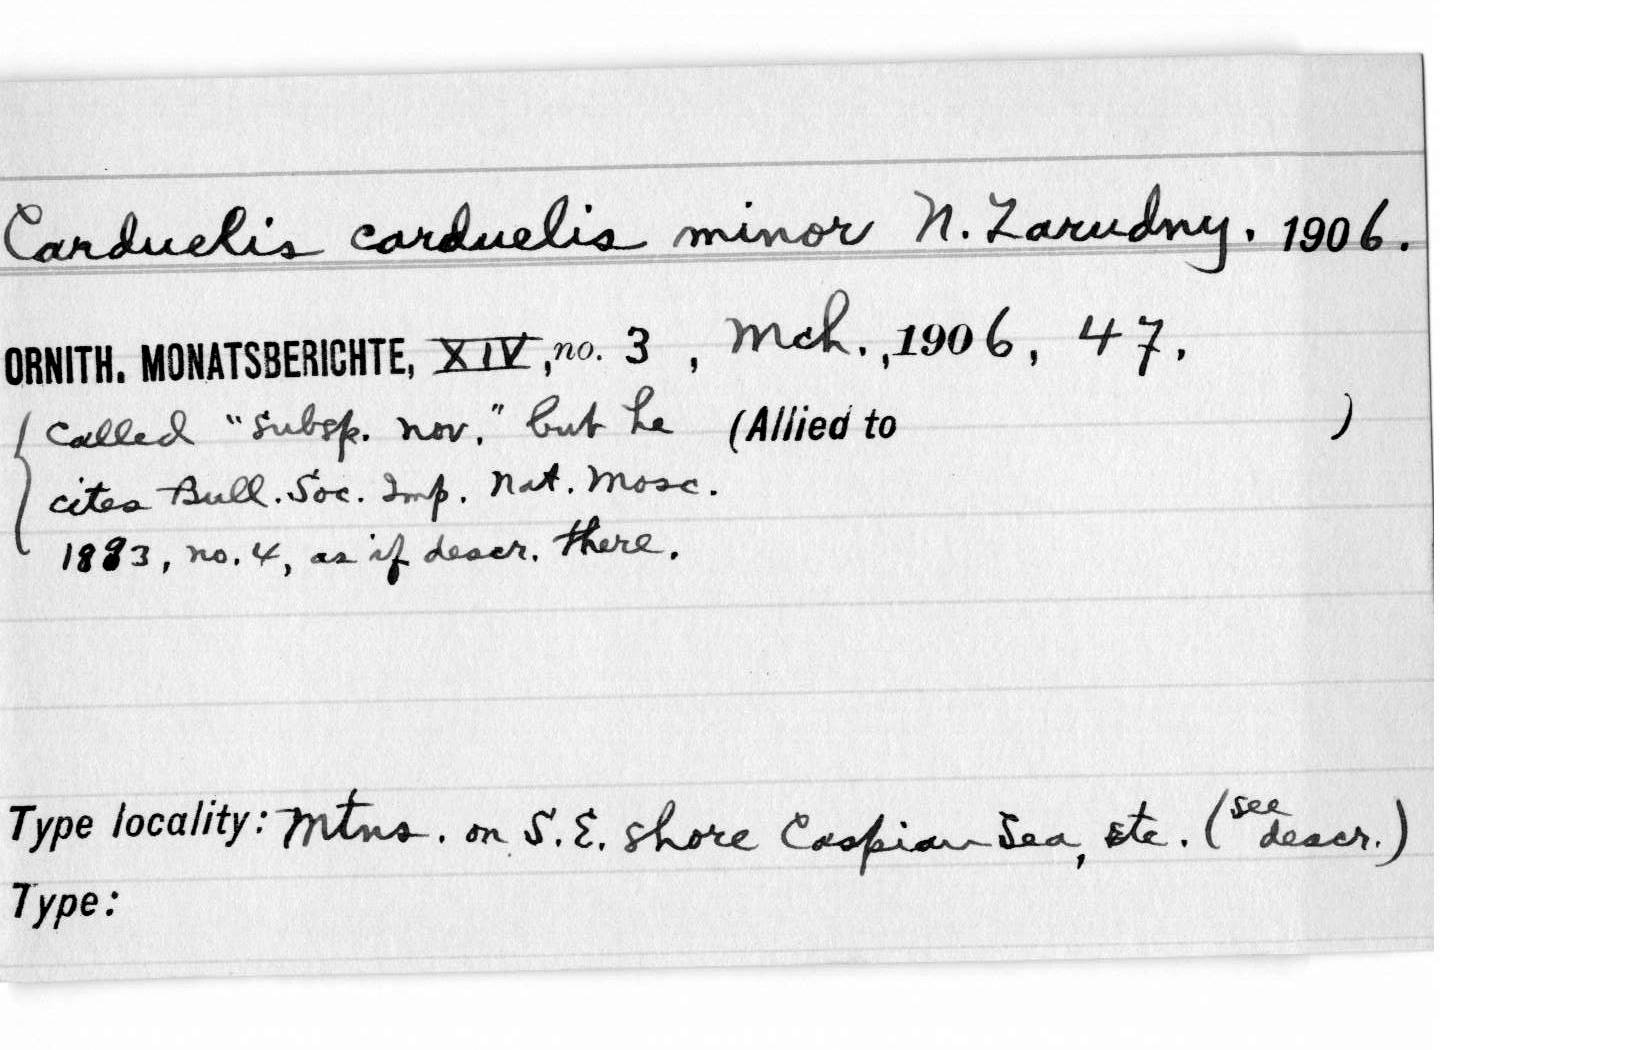 Carduelis carduelis minor N. Zarudny. 1906.
ORNITH. MONATSBERICHTE, XIV, no. 3, Mch., 1906, 47.
Called "Subsp. nov." but he (Allied to )
cites Bull. Soc. Imp. Nat. Mosc.
1883, no. 4, as if descr. there.
Type locality: Mtns. on S.E. shore Caspian Sea, etc. (see descr.)
Type: